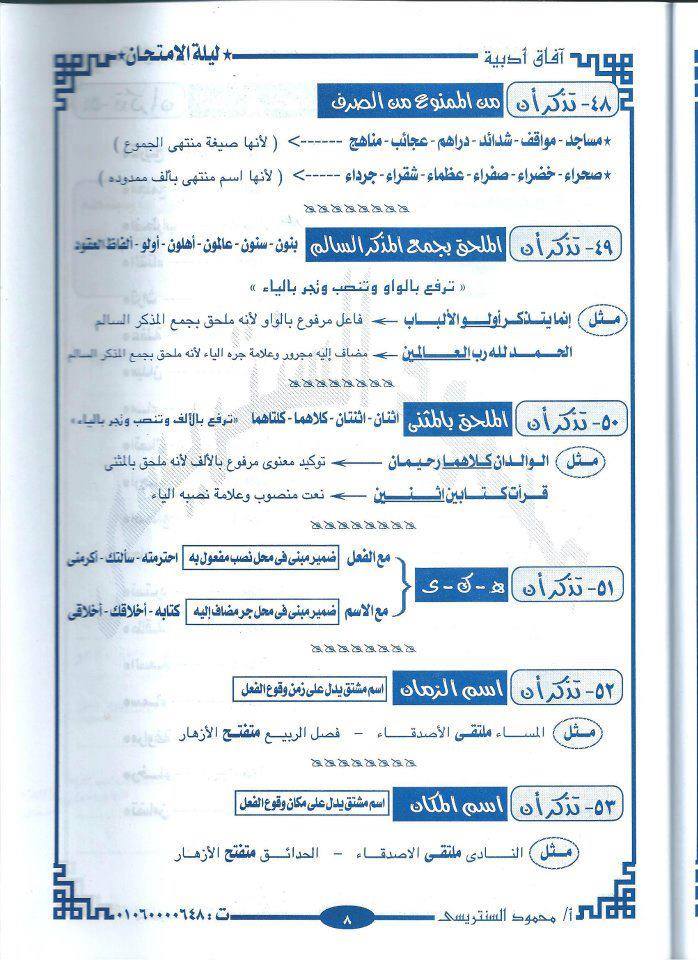 آفاق أدبية
* ليلة الامتحان *
٤٨- تذكر أن من الممنوع من الصرف
* مساجد - مواقف - شدائد - دراهم - عجائب - مناهج ------> ( لأنها صيغة منتهى الجموع )
* صحراء - خضراء - صفراء - عظماء - شقراء - جرداء -----> ( لأنها اسم منتهى بألف ممدوده )
٤٩- تذكر أن الملحق بجمع المذكر السالم بنون - سنون - عالمون - أهلون - أولو - ألفاظ العقود
« ترفع بالواو وتنصب وتجر بالياء »
مثل إنما يتذكر أولو الألباب ← فاعل مرفوع بالواو لأنه ملحق بجمع المذكر السالم
الحمد لله رب العالمين ← مضاف إليه مجرور وعلامة جره الياء لأنه ملحق بجمع المذكر السالم
٥٠- تذكر أن الملحق بالمثنى اثنان - اثنتان - كلاهما - كلتاهما «ترفع بالألف وتنصب وتجر بالياء»
مثل الوالدان كلاهما رحيمان ← توكيد معنوى مرفوع بالألف لأنه ملحق بالمثنى
قرأت كتابين اثنين ← نعت منصوب وعلامة نصبه الياء
٥١- تذكر أن هـ - ك - ى
مع الفعل ضمير مبنى فى محل نصب مفعول به احترمته - سألتك - أكرمنى
مع الاسم ضمير مبنى فى محل جر مضاف إليه كتابه - أخلاقك - أخلاقى
٥٢- تذكر أن اسم الزمان اسم مشتق يدل على زمن وقوع الفعل
مثل المساء ملتقى الأصدقاء - فصل الربيع متفتح الأزهار
٥٣- تذكر أن اسم المكان اسم مشتق يدل على مكان وقوع الفعل
مثل النادى ملتقى الاصدقاء - الحدائق متفتح الأزهار
أ/ محمود السنتريسى
٨
ت : ٠١٠٦٠٠٠٠٦٤٨